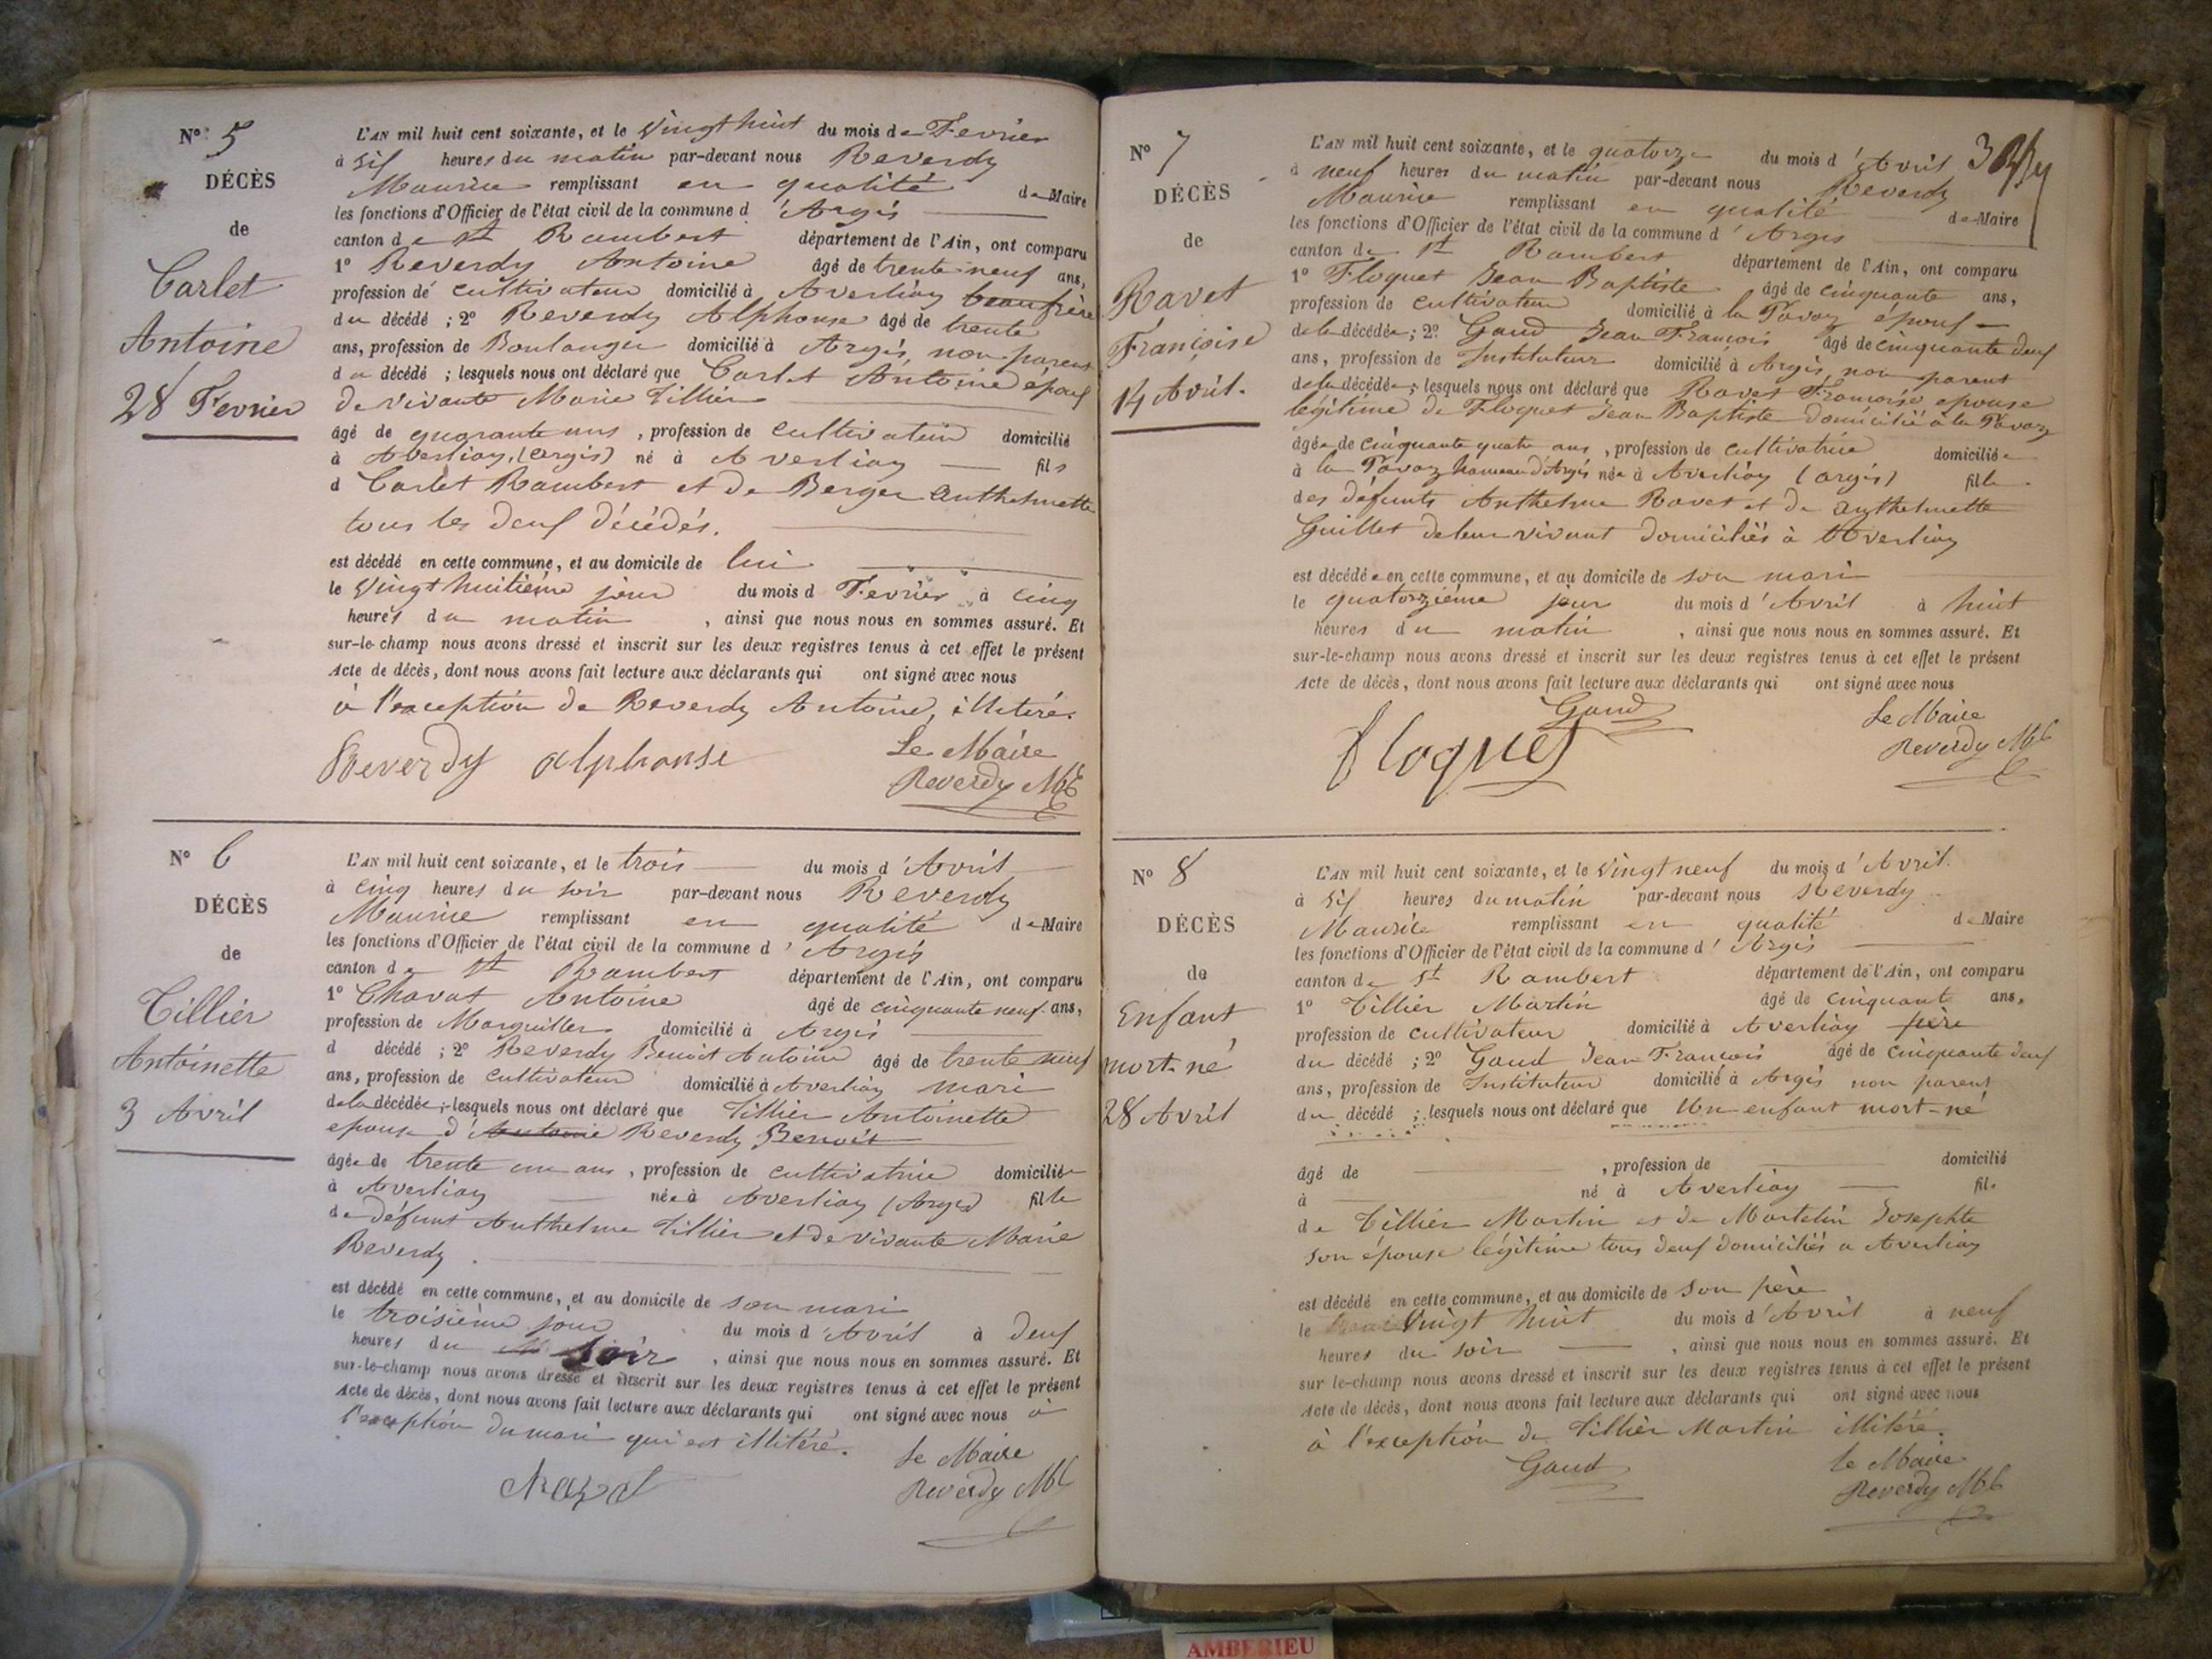 N° 5
DÉCÈS
de
Carlet
Antoine
28 Fevrier
L'AN mil huit cent soixante, et le Vingt huit du mois de Fevrier
à Six heures du matin par-devant nous Reverdy
Maurice remplissant en qualité de Maire
les fonctions d'Officier de l'état civil de la commune d'Argis
canton de St Rambert département de l'Ain, ont comparu
1° Reverdy Antoine âgé de trente neuf ans,
profession de cultivateur domicilié à Averliay beaufrère
du décédé ; 2° Reverdy Alphonse âgé de trente
ans, profession de Boulanger domicilié à Argis, non parent
du décédé ; lesquels nous ont déclaré que Carlet Antoine époux
de vivante Marie Tillier
âgé de quarante uns, profession de cultivateur domicilié
à Averliay, (Argis) né à Averliay fils
d Carlet Rambert et de Berger Anthelmette
tous les deux décédés.
est décédé en cette commune, et au domicile de lui
le Vingt huitième jour du mois d Fevrier à cinq
heures du matin, ainsi que nous nous en sommes assuré. Et
sur-le-champ nous avons dressé et inscrit sur les deux registres tenus à cet effet le présent
Acte de décès, dont nous avons fait lecture aux déclarants qui ont signé avec nous
à l'exception de Reverdy Antoine, illiteré.
Reverdy alphonse Le Maire
Reverdy
N° 6
DÉCÈS
de
Tillier
Antoinette
3 Avril
L'AN mil huit cent soixante, et le trois du mois d'Avril
à cinq heures du soir par-devant nous Reverdy
Maurice remplissant en qualité de Maire
les fonctions d'Officier de l'état civil de la commune d'Argis
canton de St Rambert département de l'Ain, ont comparu
1° Chavat Antoine âgé de cinquante neuf ans,
profession de Marguiller domicilié à Argis
d décédé ; 2° Reverdy Benoit Antoine âgé de trente neuf
ans, profession de cultivateur domicilié à Averliay mari
de la décédée ; lesquels nous ont déclaré que Tillier Antoinette
epouse d'Antoine Reverdy Benoit
âgée de trente un ans, profession de cultivatrice domiciliée
à Averliay née à Averliay (Argis) fille
de défunt Anthelme Tillier et de vivante Marie
Reverdy
est décédé en cette commune, et au domicile de son mari
le troisième jour du mois d'Avril à deux
heures du soir, ainsi que nous nous en sommes assuré. Et
sur-le-champ nous avons dressé et inscrit sur les deux registres tenus à cet effet le présent
Acte de décès, dont nous avons fait lecture aux déclarants qui ont signé avec nous à
l'exception du mari qui est illitéré.
Le Maire
Reverdy
N° 7
DÉCÈS
de
Ravet
Françoise
14 Avril.
L'AN mil huit cent soixante, et le quatorze du mois d'Avril 3
à neuf heures du matin par-devant nous Reverdy
Maurice remplissant en qualité de Maire
les fonctions d'Officier de l'état civil de la commune d'Argis
canton de St Rambert département de l'Ain, ont comparu
1° Floquet Jean Baptiste âgé de cinquante ans,
profession de cultivateur domicilié à la Tavoz époux
de la décédée ; 2° Gaud Jean François âgé de cinquante deux
ans, profession de Instituteur domicilié à Argis, non parent
de la décédée ; lesquels nous ont déclaré que Ravet Françoise epouse
légitime de Floquet Jean Baptiste domicilié à la Tavoz
âgée de cinquante quatre ans, profession de cultivatrice domiciliée
à la Tavoz hameau d'Argis née à Averliay (argis) fille
des défunts Anthelme Ravet et de Anthelmette
Guillet de leur vivant domiciliés à Averliay
est décédée en cette commune, et au domicile de son mari
le quatorzième jour du mois d'Avril à huit
heures du matin, ainsi que nous nous en sommes assuré. Et
sur-le-champ nous avons dressé et inscrit sur les deux registres tenus à cet effet le présent
Acte de décès, dont nous avons fait lecture aux déclarants qui ont signé avec nous
Gaud Le Maire
floquet Reverdy
N° 8
DÉCÈS
de
Enfant
mort-né
28 Avril
L'AN mil huit cent soixante, et le Vingt neuf du mois d'Avril.
à Six heures du matin par-devant nous Reverdy
Maurice remplissant en qualité de Maire
les fonctions d'Officier de l'état civil de la commune d'Argis
canton de St Rambert département de l'Ain, ont comparu
1° Tillier Martin âgé de cinquante ans,
profession de cultivateur domicilié à Averliay père
du décédé ; 2° Gaud Jean François âgé de cinquante deux
ans, profession de Instituteur domicilié à Argis non parent
du décédé ; lesquels nous ont déclaré que Un enfant mort-né
âgé de , profession de domicilié
à né à Averliay fil
de Tillier Martin et de Martelin Josephte
son épouse légitime tous deux domiciliés a Averliay
est décédé en cette commune, et au domicile de son père
le Vingt huit du mois d'Avril à neuf
heures du soir, ainsi que nous nous en sommes assuré. Et
sur-le-champ nous avons dressé et inscrit sur les deux registres tenus à cet effet le présent
Acte de décès, dont nous avons fait lecture aux déclarants qui ont signé avec nous
à l'exception de Tillier Martin illitéré.
Gaud le Maire
Reverdy
AMBERIEU